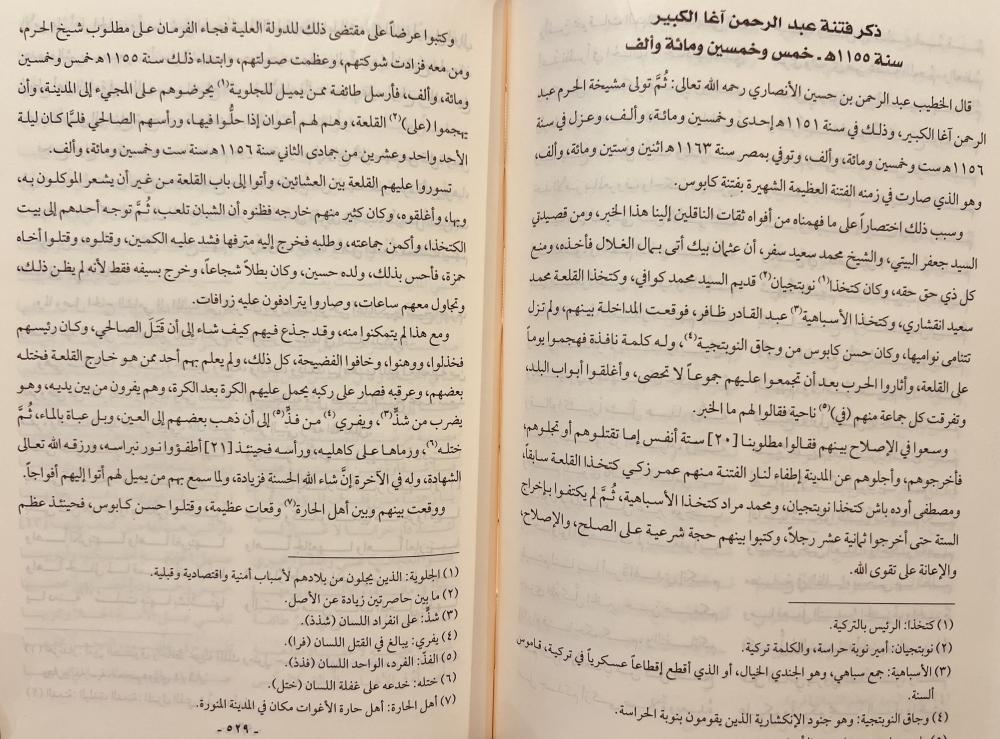 ذكر فتنة عبد الرحمن آغا الكبير
سنة ١١٥٥هـ. خمس وخمسين ومائة وألف
قال الخطيب عبد الرحمن بن حسين الأنصاري رحمه الله تعالى: ثُمَّ تولى مشيخة الحرم عبد
الرحمن آغا الكبير، وذلك في سنة ١١٥١هـ إحدى وخمسين ومائة، وألف، وعزل في سنة
١١٥٦هـ ست وخمسين ومائة، وألف، وتوفي بمصر سنة ١١٦٣هـ اثنين وستين ومائة، وألف،
وهو الذي صارت في زمنه الفتنة العظيمة الشهيرة بفتنة كابوس.
وسبب ذلك اختصاراً على ما فهمناه من أفواه ثقات الناقلين إلينا هذا الخبر، ومن قصيدتي
السيد جعفر البيتي، والشيخ محمد سعيد سفر، أن عثمان بيك أتى بمال الغلال فأخذه، ومنع
كل ذي حق حقه، وكان كتخذا(١) نوبتجيان(٢) قديم السيد محمد كوافي، وكتخذا القلعة محمد
سعيد انقشاري، وكتخذا الأسباهية(٣) عبد القادر ظافر، فوقعت المداخلة بينهم، ولم تزل
تتنامى نواميها، وكان حسن كابوس من وجاق النوبتجية(٤)، وله كلمة نافذة فهجموا يوماً
على القلعة، وأثاروا الحرب بعد أن تجمعوا عليهم جموعاً لا تحصى، وأغلقوا أبواب البلد،
وتفرقت كل جماعة منهم (في)(٥) ناحية فقالوا لهم ما الخبر.
وسعوا في الإصلاح بينهم فقالوا مطلوبنا [٢٠] ستة أنفس إما تقتلوهم أو تجلوهم،
فأخرجوهم، وأجلوهم عن المدينة إطفاء لنار الفتنة منهم عمر زكي كتخذا القلعة سابقاً،
ومصطفى أوده باش كتخذا نوبتجيان، ومحمد مراد كتخذا الأسباهية، ثُمَّ لم يكتفوا بإخراج
الستة حتى أخرجوا ثمانية عشر رجلاً، وكتبوا بينهم حجة شرعية على الصلح، والإصلاح،
والإعانة على تقوى الله.
(١) كتخذا: الرئيس بالتركية.
(٢) نوبتجيان: أمير نوبة حراسة، والكلمة تركية.
(٣) الأسباهية: جمع سباهي، وهو الجندي الخيال، أو الذي أقطع إقطاعاً عسكرياً في تركية، قاموس
ألسنة.
(٤) وجاق النوبتجية: وهو جنود الإنكشارية الذين يقومون بنوبة الحراسة.
وكتبوا عرضاً على مقتضى ذلك للدولة العلية فجاء الفرمان على مطلوب شيخ الحرم،
ومن معه فزادت شوكتهم، وعظمت صولتهم، وابتداء ذلك سنة ١١٥٥هـ خمس وخمسين
ومائة، وألف، فأرسل طائفة ممن يميل للجلوية(١) يحرضوهم على المجيء إلى المدينة، وأن
يهجموا (على)(٢) القلعة، وهم لهم أعوان إذا حلُّوا فيها، ورأسهم الصالحي فلمَّا كان ليلة
الأحد واحد وعشرين من جمادى الثاني سنة ١١٥٦هـ سنة ست وخمسين ومائة، وألف.
تسوروا عليهم القلعة بين العشائين، وأتوا إلى باب القلعة من غير أن يشعر الموكلون به،
وبها، وأغلقوه، وكان كثير منهم خارجه فظنوه أن الشبان تلعب، ثُمَّ توجه أحدهم إلى بيت
الكتخذا، وأكمن جماعته، وطلبه فخرج إليه مترفها فشد عليه الكمين، وقتلوه، وقتلوا أخاه
حمزة، فأحس بذلك، ولده حسين، وكان بطلاً شجاعاً، وخرج بسيفه فقط لأنه لم يظن ذلك،
وتجاول معهم ساعات، وصاروا يترادفون عليه زرافات.
ومع هذا لم يتمكنوا منه، وقد جذع فيهم كيف شاء إلى أن قَتَلَ الصالحي، وكان رئيسهم
فخذلوا، ووهنوا، وخافوا الفضيحة، كل ذلك، ولم يعلم بهم أحد ممن هو خارج القلعة فختله
بعضهم، وعرقبه فصار على ركبه يحمل عليهم الكرة بعد الكرة، وهم يفرون من بين يديه، وهو
يضرب من شذَّ(٣)، ويفري(٤) من فذَّ(٥) إلى أن ذهب بعضهم إلى العين، وبل عباة بالماء، ثُمَّ
ختله(٦)، ورماها على كاهليه، ورأسه فحينئذ [٢١] أطفؤوا نور نبراسه، ورزقه الله تعالى
الشهادة، وله في الآخرة إنَّ شاء الله الحسنة فزيادة، ولما سمع بهم من يميل لهم أتوا إليهم أفواجاً.
ووقعت بينهم وبين أهل الحارة(٧) وقعات عظيمة، وقتلوا حسن كابوس، فحينئذ عظم
(١) الجلوية: الذين يجلون من بلادهم لأسباب أمنية واقتصادية وقبلية.
(٢) ما بين حاصرتين زيادة عن الأصل.
(٣) شذَّ: على انفراد اللسان (شذذ).
(٤) يفري: يبالغ في القتل اللسان (فرا).
(٥) الفذّ: الفرد، الواحد اللسان (فذذ).
(٦) ختله: خدعه على غفلة اللسان (ختل).
(٧) أهل الحارة: أهل حارة الأغوات مكان في المدينة المنورة.
- ٥٢٩ -